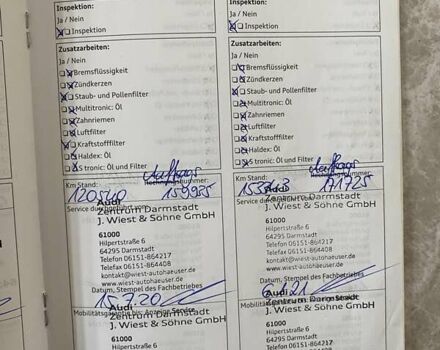 Inspektion:
Ja / Nein
Inspektion
Zusatzarbeiten:
Ja / Nein
Bremsflüssigkeit
Zündkerzen
Staub- und Pollenfilter
Multitronic: Öl
Zahnriemen
Luftfilter
Kraftstofffilter
Haldex: Öl
S tronic: Öl und Filter
Auftrags
Km Stand:
nummer:
120540
159985
Audi
Zentrum Darmstadt
J. Wiest & Söhne GmbH
61000
Hilpertstraße 6
64295 Darmstadt
Telefon 06151-864217
Telefax 06151-864408
kontakt@wiest-autohaeuser.de
www.wiest-autohaeuser.de
Datum, Stempel des Fachbetriebes
15.7.20
Audi
Zentrum Darmstadt
J. Wiest & Söhne GmbH
61000
Hilpertstraße 6
64295 Darmstadt
Telefon 06151-864217
Telefax 06151-864408
Inspektion:
Ja / Nein
Inspektion
Zusatzarbeiten:
Ja / Nein
Bremsflüssigkeit
Zündkerzen
Staub- und Pollenfilter
Multitronic: Öl
Zahnriemen
Luftfilter
Kraftstofffilter
Haldex: Öl
S tronic: Öl und Filter
Auftrags
Km Stand:
nummer:
171725
Audi
Zentrum Darmstadt
J. Wiest & Söhne GmbH
61000
Hilpertstraße 6
64295 Darmstadt
Telefon 06151-864217
Telefax 06151-864408
kontakt@wiest-autohaeuser.de
www.wiest-autohaeuser.de
Datum, Stempel des Fachbetriebes
Audi
Zentrum Darmstadt
J. Wiest & Söhne GmbH
61000
Hilpertstraße 6
64295 Darmstadt
Telefon 06151-864217